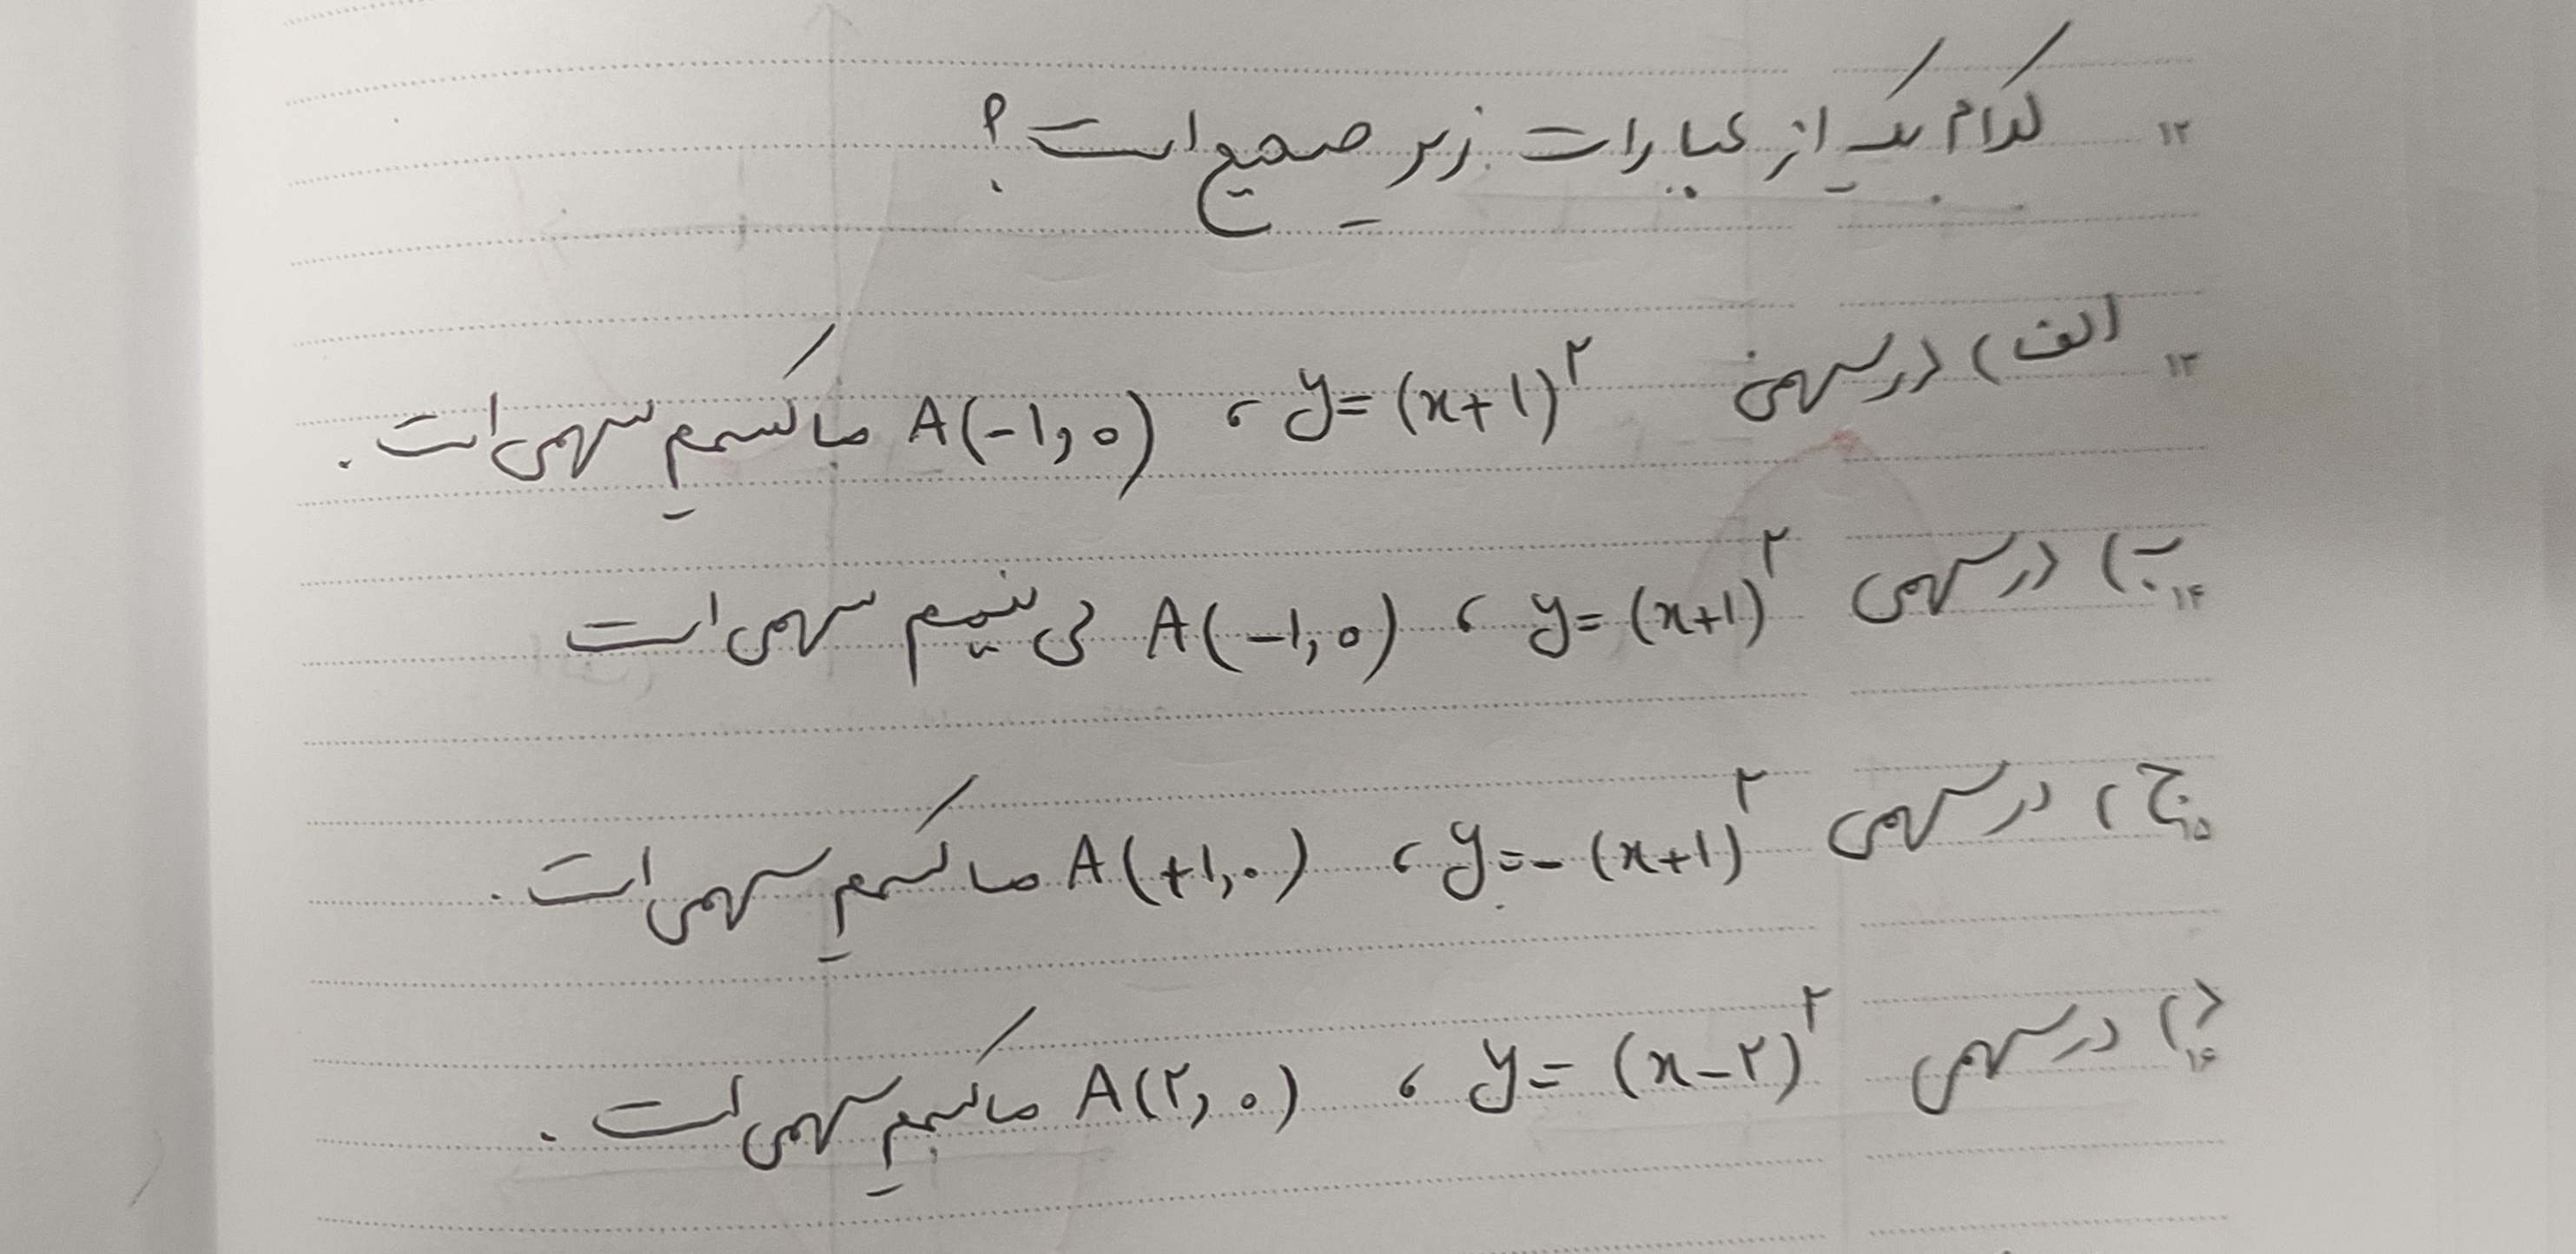 ۱۲ کدام یک از عبارات زیر صحیح است؟
۱۳ الف) در سهمی y=(x+1)^۲ ، A(-1,0) ماکسیمم سهمی است.
۱۴ ب) در سهمی y=(x+1)^۲ ، A(-1,0) می نیمم سهمی است
۱۵ ج) در سهمی y=-(x+1)^۲ ، A(+1,0) ماکسیمم سهمی است.
۱۶ د) در سهمی y=(x-۲)^۲ ، A(۲,0) ماکسیمم سهمی است.